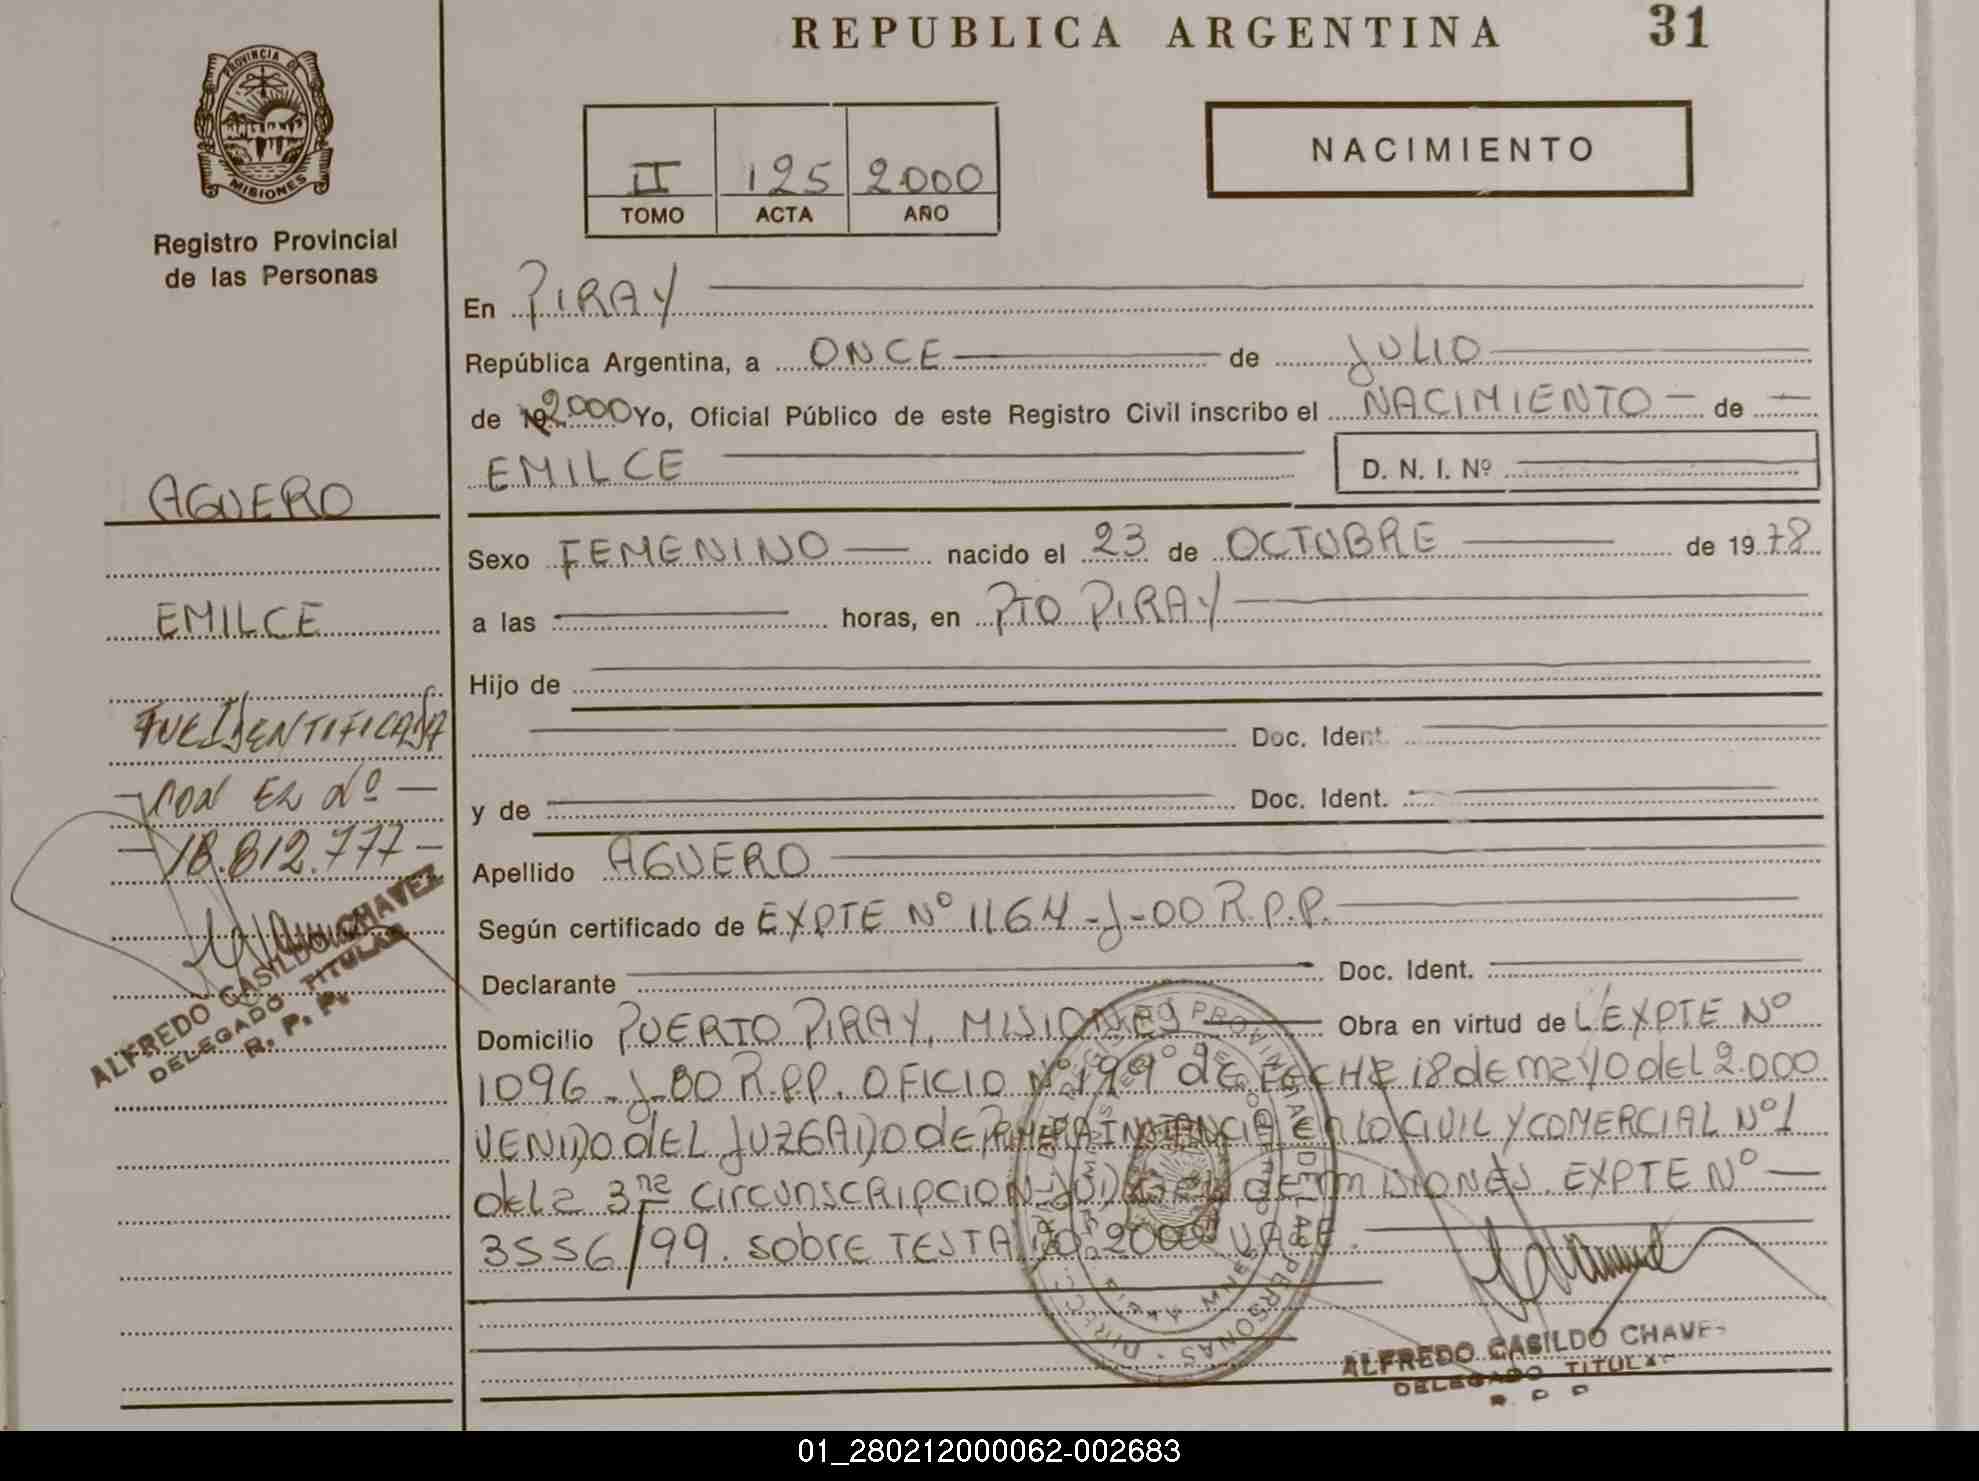 REPUBLICA ARGENTINA 31
PROVINCIA DE
MISIONES
Registro Provincial
de las Personas
II 125 2000
TOMO ACTA AÑO
NACIMIENTO
En PIRAY
República Argentina, a ONCE de JULIO
de 19 2000 Yo, Oficial Público de este Registro Civil inscribo el NACIMIENTO de
EMILCE D. N. I. Nº
Sexo FEMENINO nacido el 23 de OCTUBRE de 1978
a las horas, en PTO PIRAY
Hijo de
Doc. Ident.
y de Doc. Ident.
Apellido AGUERO
Según certificado de EXPTE Nº 1164-J-00 R.P.P.
Declarante Doc. Ident.
Domicilio PUERTO PIRAY, MISIONES Obra en virtud de L'EXPTE Nº
1096-J-00 R.P.P. OFICIO Nº 199 de FECHA 18 de mayo del 2.000
VENIDO dEL JUZGADO de PRIMERA INSTANCIA EN LO CIVIL Y COMERCIAL Nº1
de la 3ra CIRCUNSCRIPCION JUDICIAL DE MISIONES. EXPTE Nº
3556/99. sobre TESTADO 2000 VALE.
ALFREDO CASILDO CHAVES
DELEGADO TITULAR
R. P. P.
AGUERO
EMILCE
FUE IDENTIFICADA
CON EL Nº
18.812.777
ALFREDO CASILDO CHAVEZ
DELEGADO TITULAR
R. P. P.
01_280212000062-002683